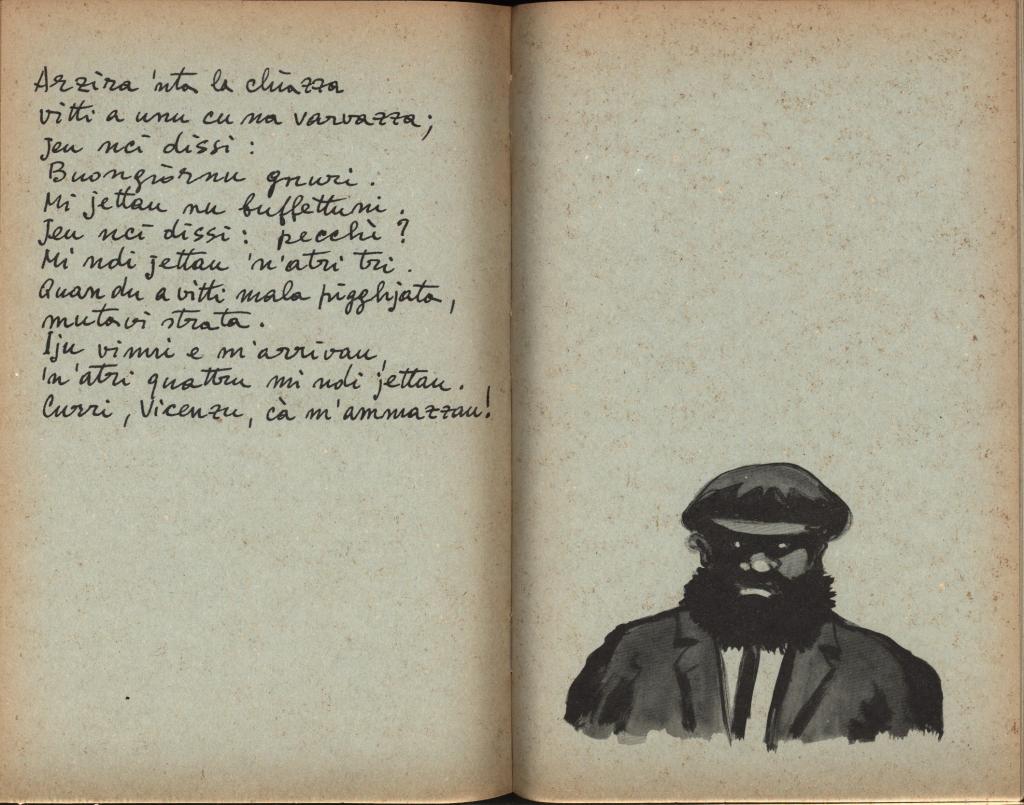 Arzira 'nta la chiazza
vitti a unu cu na varvazza;
Jeu nci dissi :
Buongiòrnu gnuri .
Mi jettau nu buffettuni .
Jeu nci dissi : pecchì ?
Mi ndi jettau 'n'atri tri .
Quandu a vitti mala pigghjata,
mutavi strata .
Iju vinni e m'arrivau,
'n'atri quattru mi ndi jettau .
Curri, Vicenzu, cà m'ammazzau!